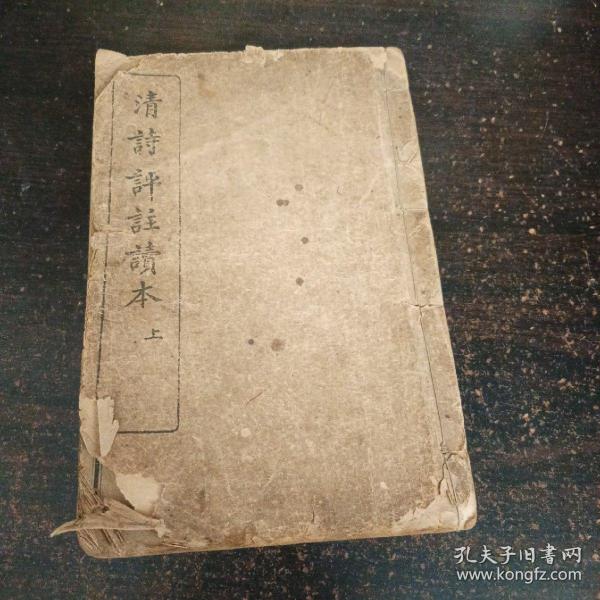 清詩評註讀本
上
孔夫子旧書网
www.kongfz.com